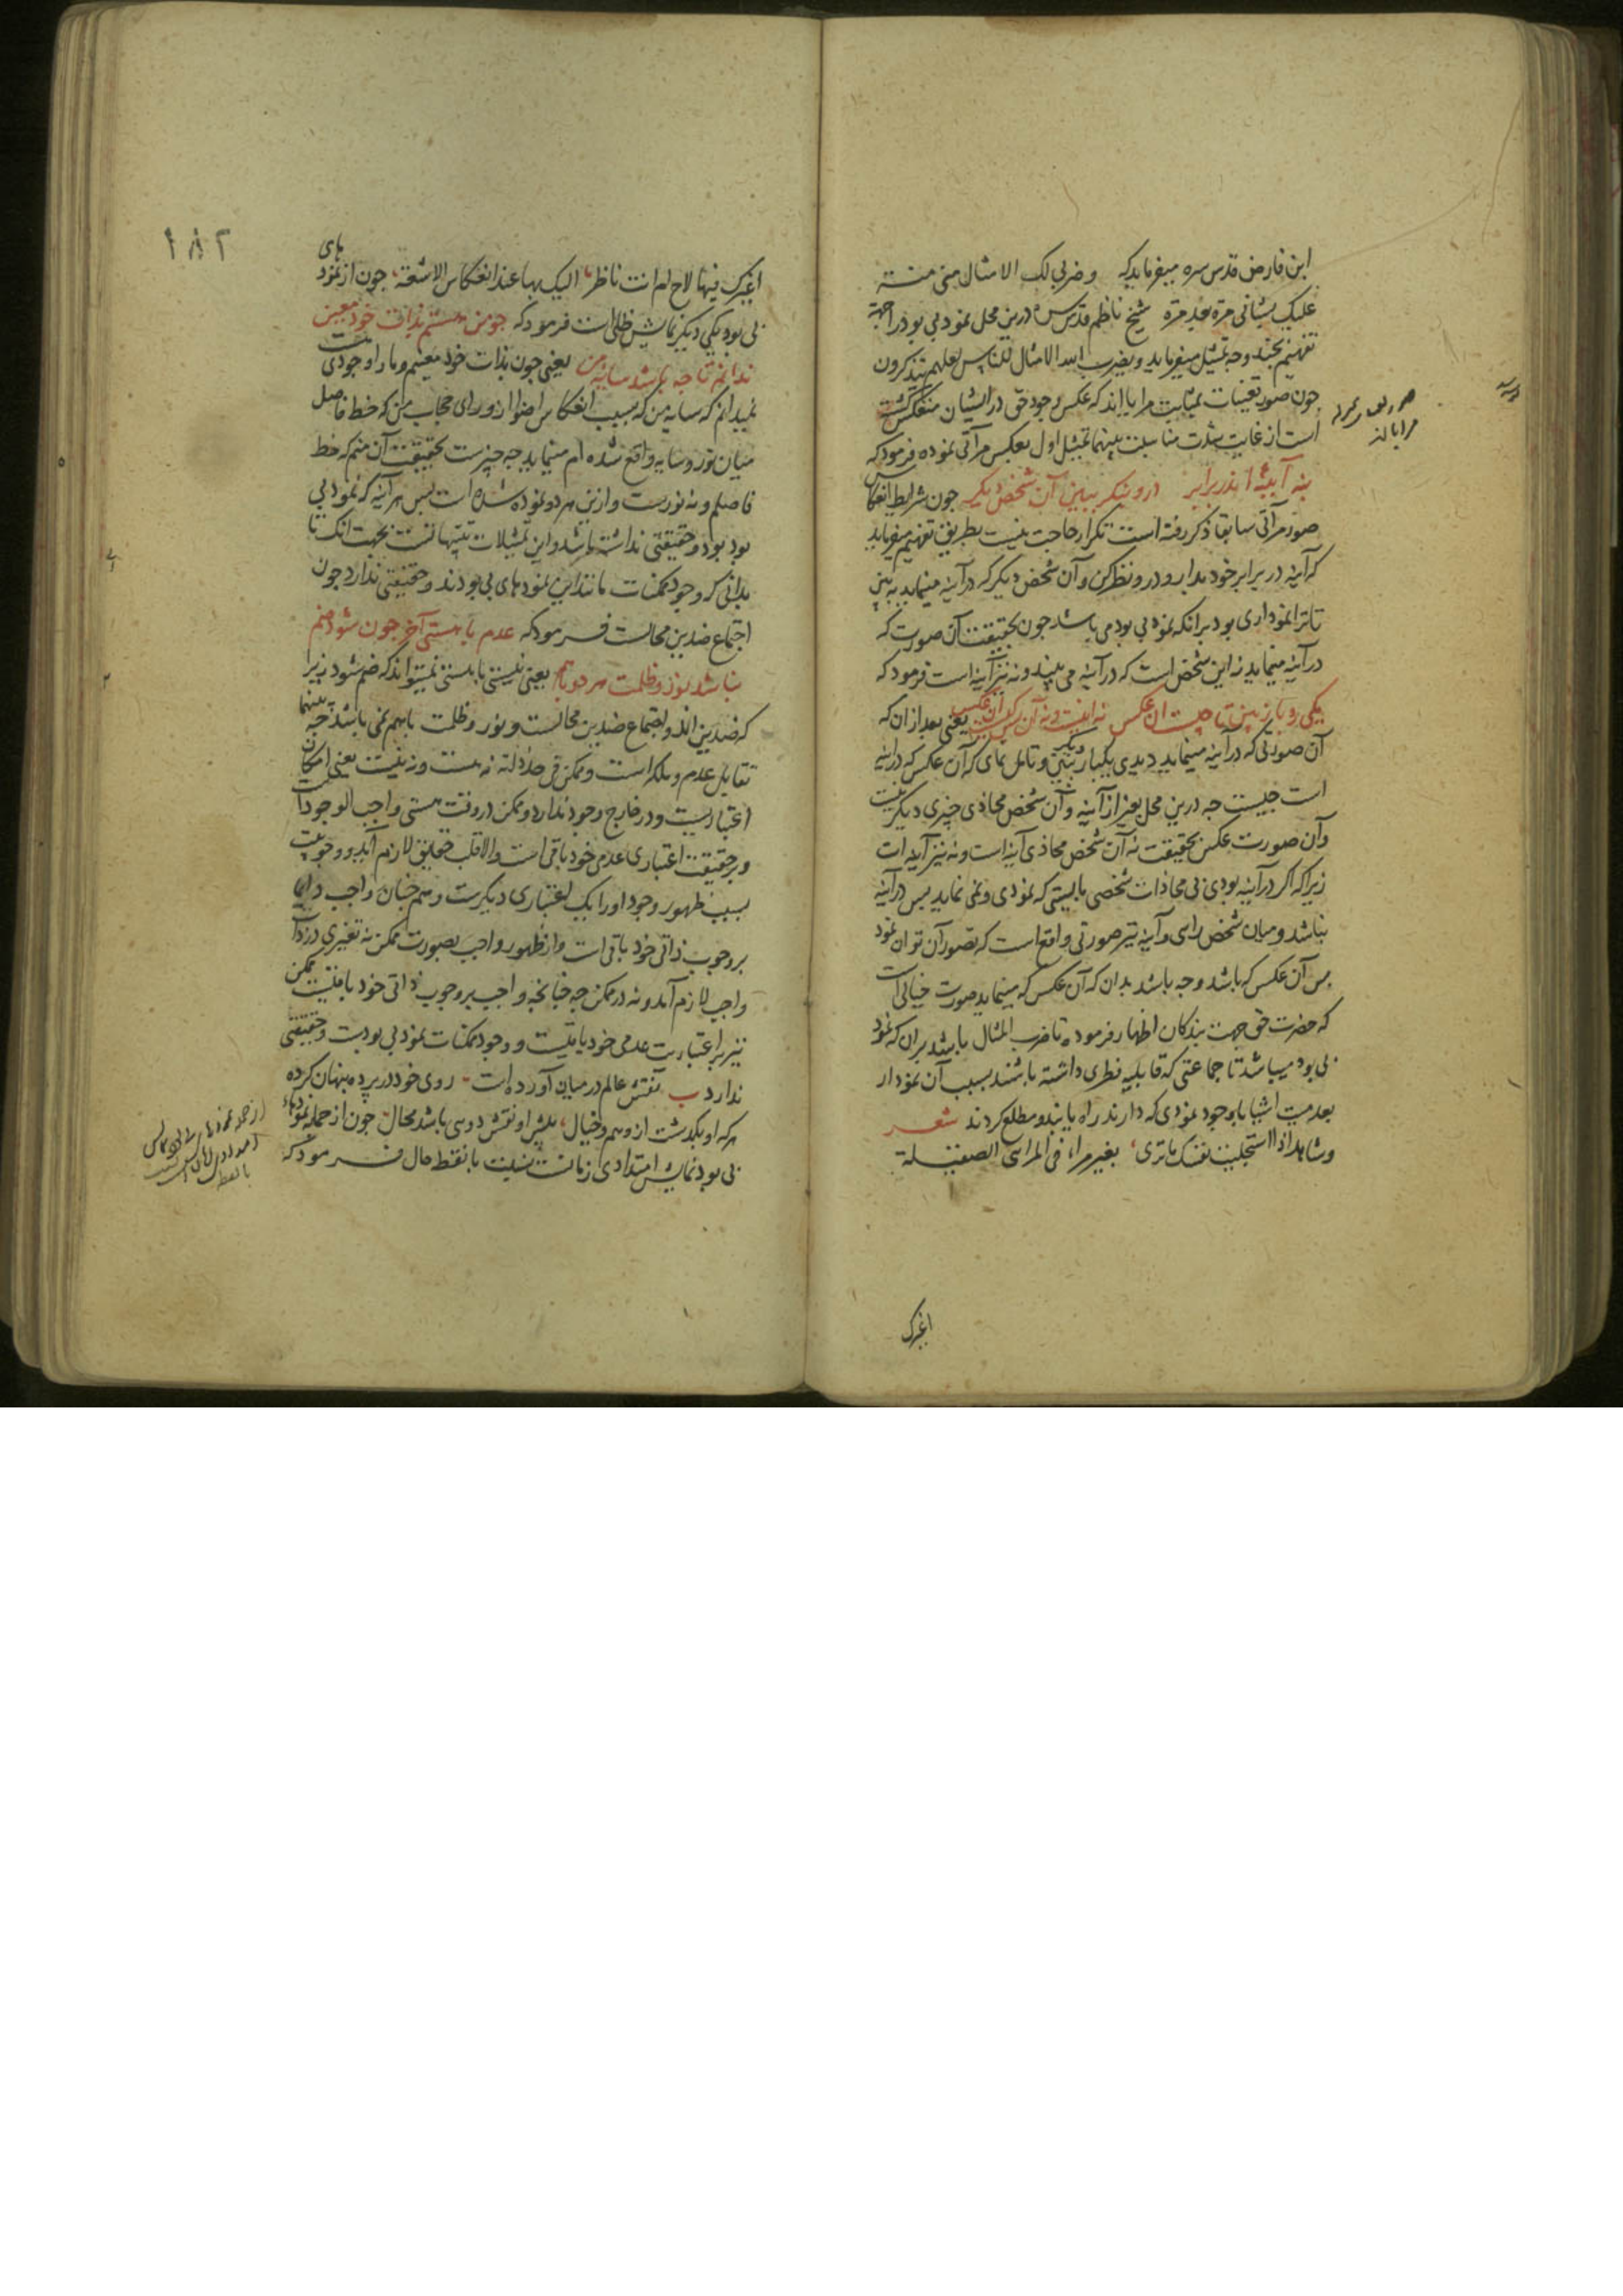 ابن فارض قدس سره میفرماید که وضربی لک الامثال منی منة
علیک بشانی مرة بعد مرة شیخ ناظم قدس سره درین محل نمود بی بود را جهة
تفهیم بچند وجه تمثیل میفرماید ویضرب الله الامثال للناس لعلهم یتذکرون
چون صور تعینات بمثابت مرایااند که عکس وجود حق در ایشان منعکس گشته
است از غایت شدت مناسبت بینهما تمثیل اول بعکس مرآتی نموده فرمود که
بنه آیینهٔ اندر برابر درو بنگر ببین آن شخص دیگر چون شرایط انعکاس
صور مرآتی سابقا ذکر رفته است تکرار حاجت نیست بطریق تفهیم میفرماید
که آینه در برابر خود بدار و درو نظر کن و آن شخص دیگر که در آینه مینماید به بین
تا ترا نموداری بود برانکه نمود بی بود می باشد چون بحقیقت آن صورت که
در آینه مینماید نه این شخص است که در آینه می بیند و نه نیز آینه است فرمود که
یکی ره باز بین تا چیست آن عکس نه اینست و نه آن پس کیست آن عکس یعنی بعد از ان که
آن صورتی که در آینه مینماید دیدی یکبار دیگر ببین و تامل نمای که آن عکس که در آینه
است چیست چه درین محل بغیر از آینه و آن شخص محاذی چیزی دیگر نیست
وآن صورت عکس بحقیقت نه آن شخص محاذی آینه است و نه نیز آینه است
زیرا که اگر در آینه بودی بی محاذات شخصی بایستی که نمودی و نمی نماید پس در آینه
نباشد و میان شخص رایی و آینه نیز صورتی واقع است که تصور آن توان نمود
پس آن عکس که باشد و چه باشد بدان که آن عکس که مینماید صورت خیالی است
که حضرت حق جهت بندکان اظهار فرموده تا ضرب المثال باشد بران که نمود
بی بود میباشد تا جماعتی که قابلیه فطری داشته باشند بسبب آن نمودار
بعدمیت اشیا با وجود نمودی که دارند راه یابند و مطلع گردند شعر
وشاهد اذا استجلیت نفسک ما تری بغیر مراء فی المرائی الصقیلة
اغیرک
اغیرک فیها لاح ام انت ناظر الیک بها عند انعکاس الاشعة چون از نمودهای
بی بود یکی دیگر نمایش ظلی است فرمود که چو من هستم بذات خود معین
ندانم تا چه باشد سایهٔ من یعنی چون بذات خود معینم و مارا وجودی است
نمیدانم که سایه من که بسبب انعکاس اضوا از ورای حجاب من که خط فاصل
میان نور و سایه واقع شده ام مینماید چه چیزست بحقیقت آن منم که خط
فاصلم و نه نورست و ازین هر دو نموده شده است پس هر آینه که نمود بی
بود بود و حقیقتی نداشته باشد و این تمثیلات تنبیهاتست بجهت آنک تا
بدانی که وجود ممکنات مانند این نمودهای بی بودند و حقیقتی ندارد چون
اجتماع ضدین محالست فرمود که عدم با هستی آخر چون شود ضم
نباشد نور و ظلمت هر دو باهم یعنی نیستی با هستی نمیتواند که ضم شود زیرا
که ضدین اند و اجتماع ضدین محالست و نور و ظلمت باهم نمی باشد چه بینهما
تقابل عدم و ملکه است و ممکن فی حد ذاته نه هست و نه نیست یعنی امکان
اعتباریست و در خارج وجود ندارد و ممکن در وقت هستی واجب الوجود است
و بر حقیقت اعتباری عدمی خود باقی است والا قلب حقایق لازم آید و وجوبیت
بسبب ظهور وجود او را بیک اعتباری دیگرست و هم چنان واجب دایما
بر وجوب ذاتی خود باقی است و از ظهور واجب بصورت ممکن نه تغیری در ذات
واجب لازم آمد و نه در ممکن چه چنانچه واجب بر وجوب ذاتی خود باقیست ممکن
نیز بر اعتباریت عدمی خود باقیست و وجود ممکنات نمود بی بودست و حقیقتی
ندارد ب نقش عالم در میان آورده است روی خود در پرده پنهان کرده
هر که او بگذشت از وهم و خیال پیش او نقش دویی باشد محال چون از جمله نمودهاء
بی بود نمایش امتدادی زمانست نسبت با نقطه حال فرمود که
۱۸۲